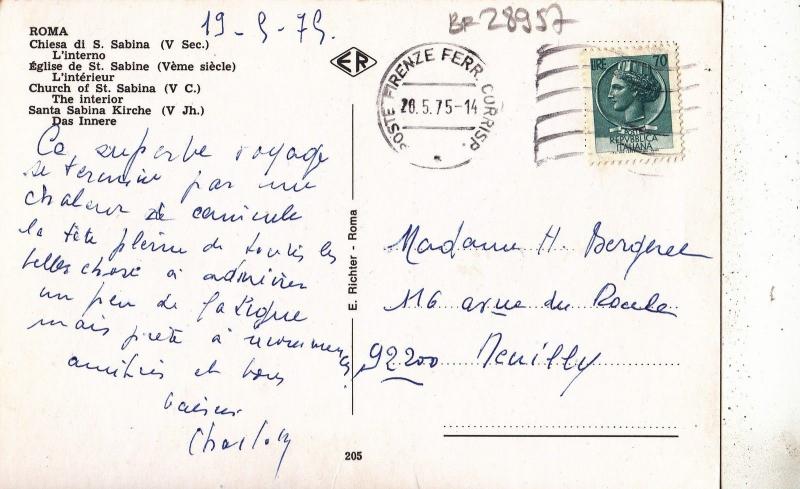 19-5-75.
BR 28957
ROMA
Chiesa di S. Sabina (V Sec.)
L'interno
Église de St. Sabine (Vème siècle)
L'intérieur
Church of St. Sabina (V C.)
The interior
Santa Sabina Kirche (V Jh.)
Das Innere
ER
POSTE FIRENZE FERR. CORRISP.
20.5.75-14
LIRE 70
POSTE
REPVBBLICA
ITALIANA
Ce superbe voyage
se termine par une
chaleur de canicule
la tête pleine de toutes les
belles chose à admirer
un peu de fatigue
mais prête à recommencer
amitiés et bons
baisers
E. Richter - Roma
Madame H.
116 du Roule
92200 Neuilly
205